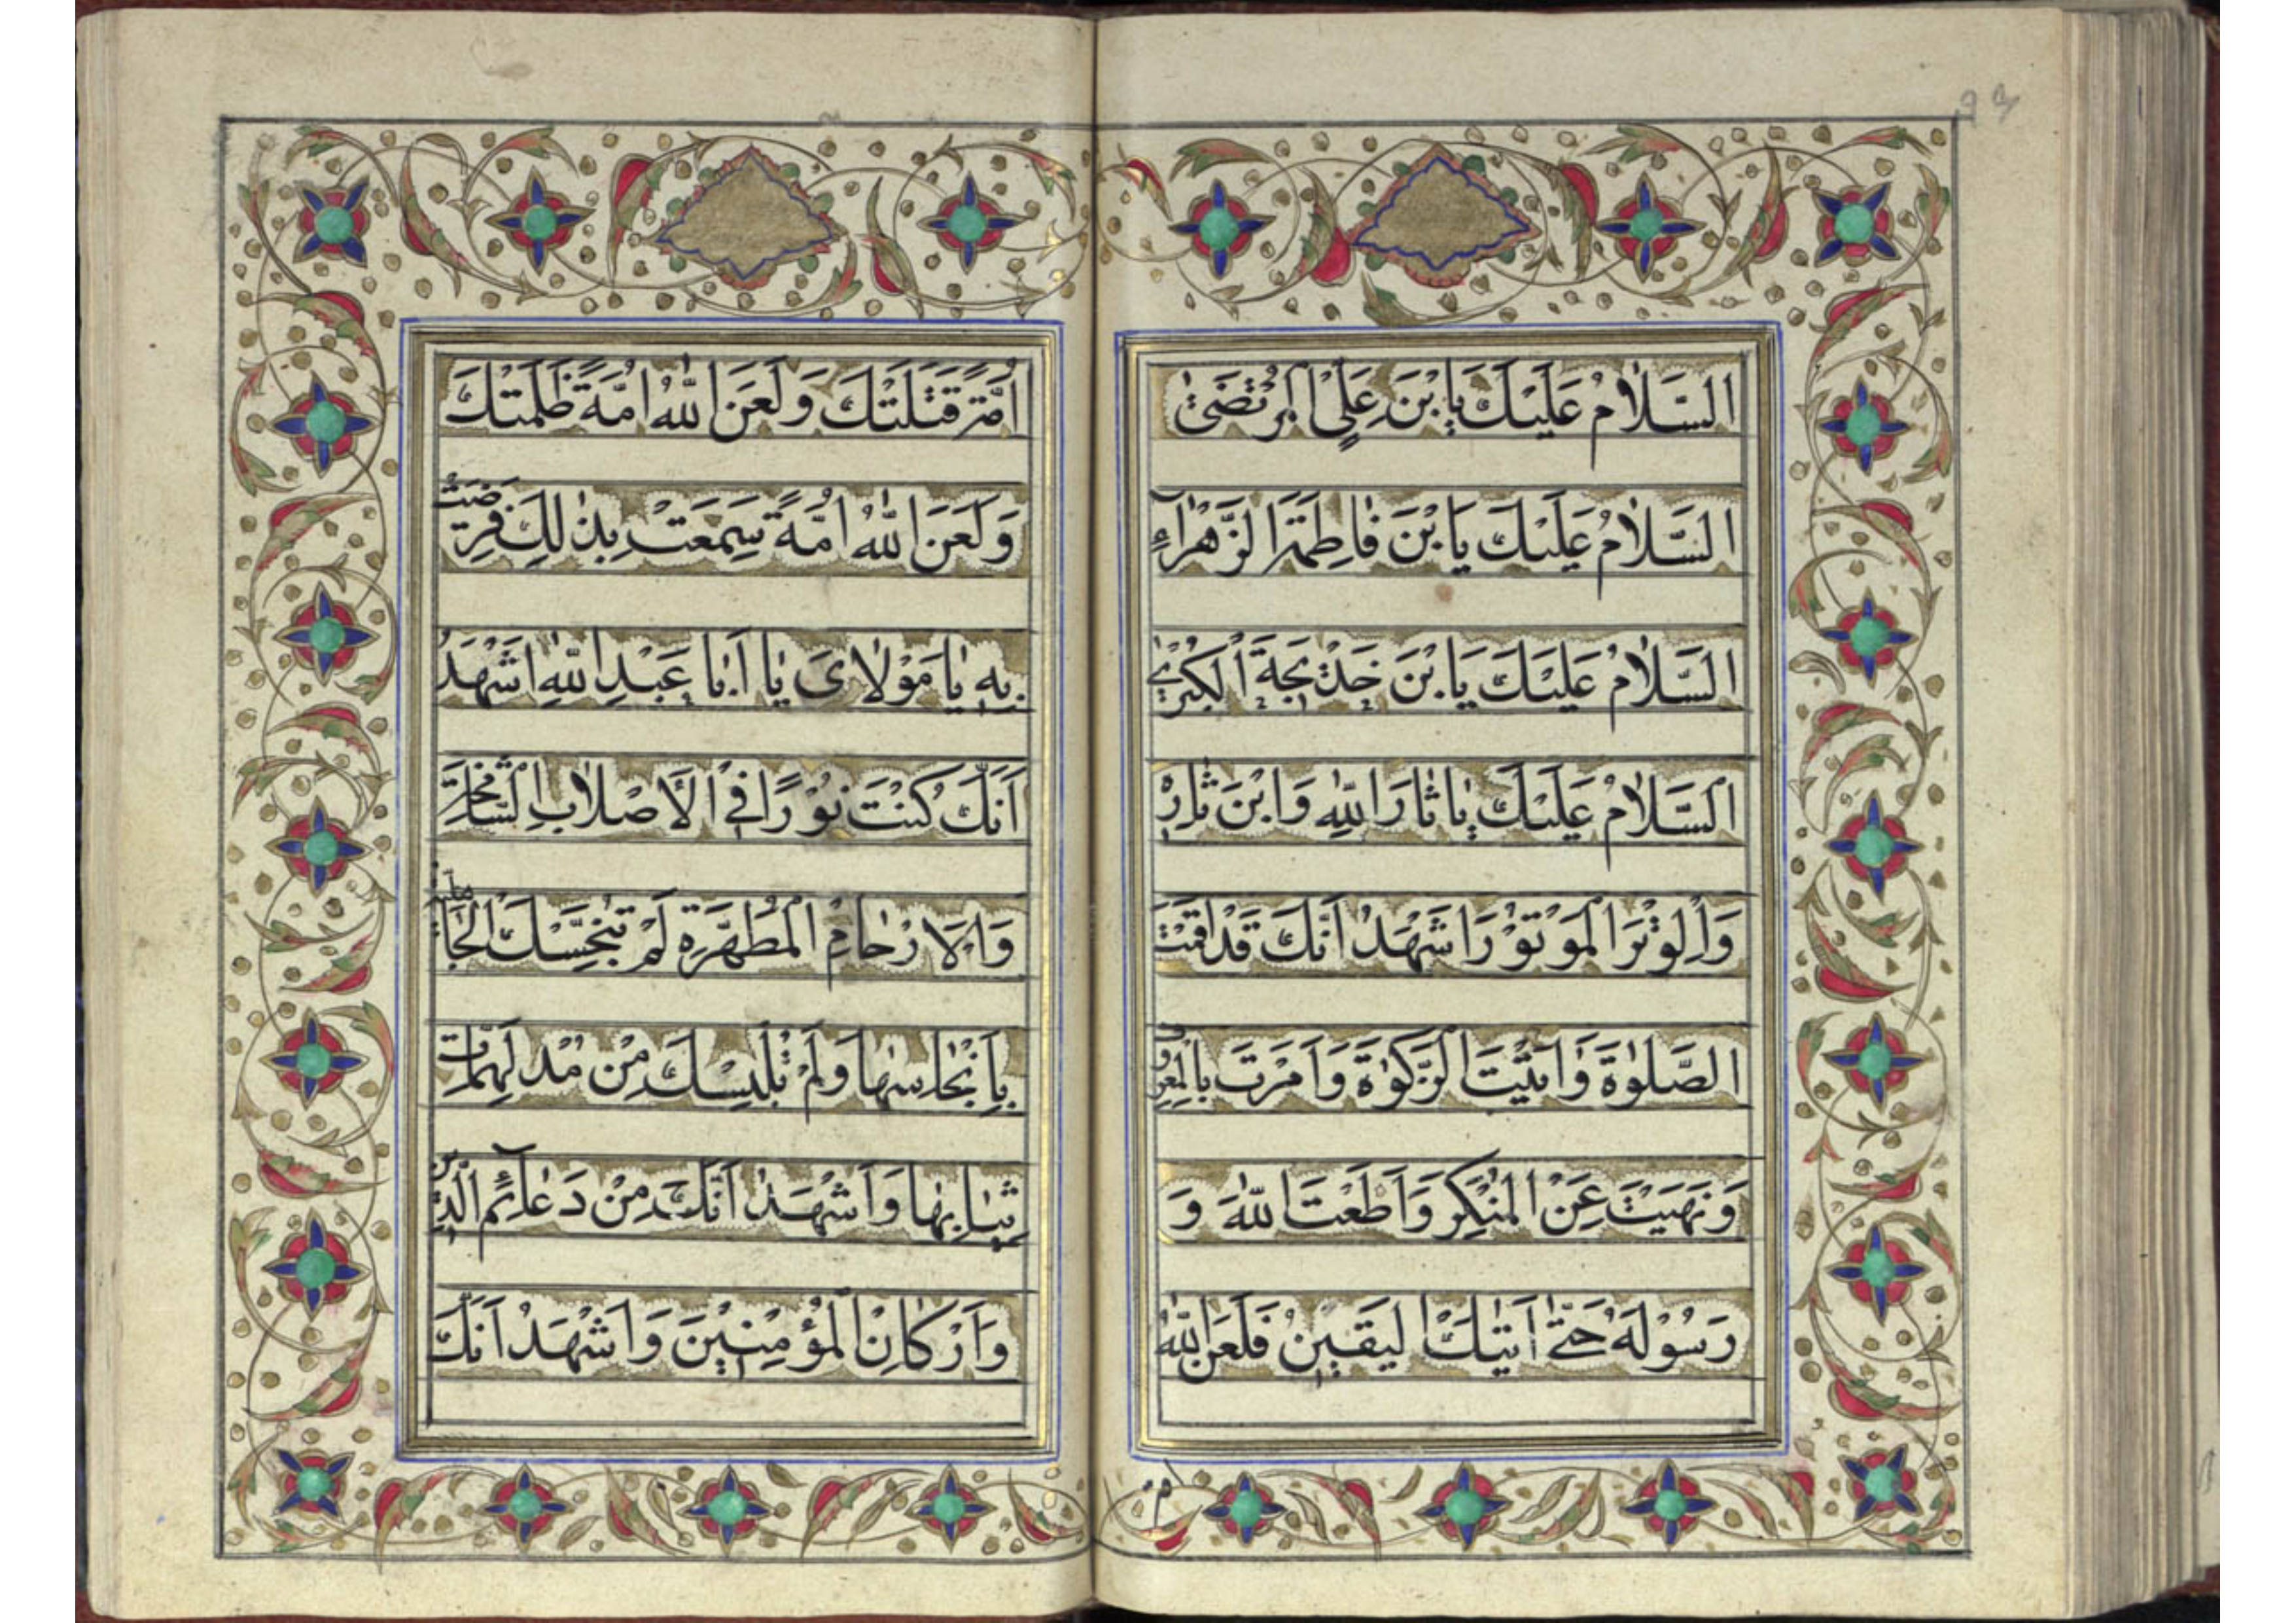 اَلسَّلاٰمُ عَلَيْكَ يَا بْنَ عَلِيٍّ الْمُرْتَضىٰ
اَلسَّلاٰمُ عَلَيْكَ يَا بْنَ فٰاطِمَةَ الزَّهْرٰآءِ
اَلسَّلاٰمُ عَلَيْكَ يَا بْنَ خَديٖجَةَ الْكُبْرىٰ
اَلسَّلاٰمُ عَلَيْكَ يٰا ثٰارَ اللّٰهِ وَابْنَ ثٰارِهٖ
وَالْوِتْرَ الْمَوْتُوْرَ اَشْهَدُ اَنَّكَ قَدْ اَقَمْتَ
الصَّلٰوةَ وَاٰتَيْتَ الزَّكٰوةَ وَاَمَرْتَ بِالْمَعْرُوفِ
وَنَهَيْتَ عَنِ الْمُنْكَرِ وَاَطَعْتَ اللّٰهَ وَ
رَسُوْلَهُ حَتّٰى اَتٰيكَ الْيَقيٖنُ فَلَعَنَ اللّٰهُ
اُمَّةً قَتَلَتْكَ وَلَعَنَ اللّٰهُ اُمَّةً ظَلَمَتْكَ
وَلَعَنَ اللّٰهُ اُمَّةً سَمِعَتْ بِذٰلِكَ فَرَضِيَتْ
بِهٖ يٰا مَوْلاٰىَ يٰا اَبٰا عَبْدِ اللّٰهِ اَشْهَدُ
اَنَّكَ كُنْتَ نُوْرًا فِي الْاَصْلاٰبِ الشّٰامِخَةِ
وَالْاَرْحٰامِ الْمُطَهَّرَةِ لَمْ تُنَجِّسْكَ الْجٰاهِلِيَّةُ
بِاَنْجٰاسِهٰا وَلَمْ تُلْبِسْكَ مِنْ مُدْلَهِمّٰاتِ
ثِيٰابِهٰا وَاَشْهَدُ اَنَّكَ مِنْ دَعٰائِمِ الدّيٖنِ
وَاَرْكٰانِ الْمُؤْمِنيٖنَ وَاَشْهَدُ اَنَّكَ